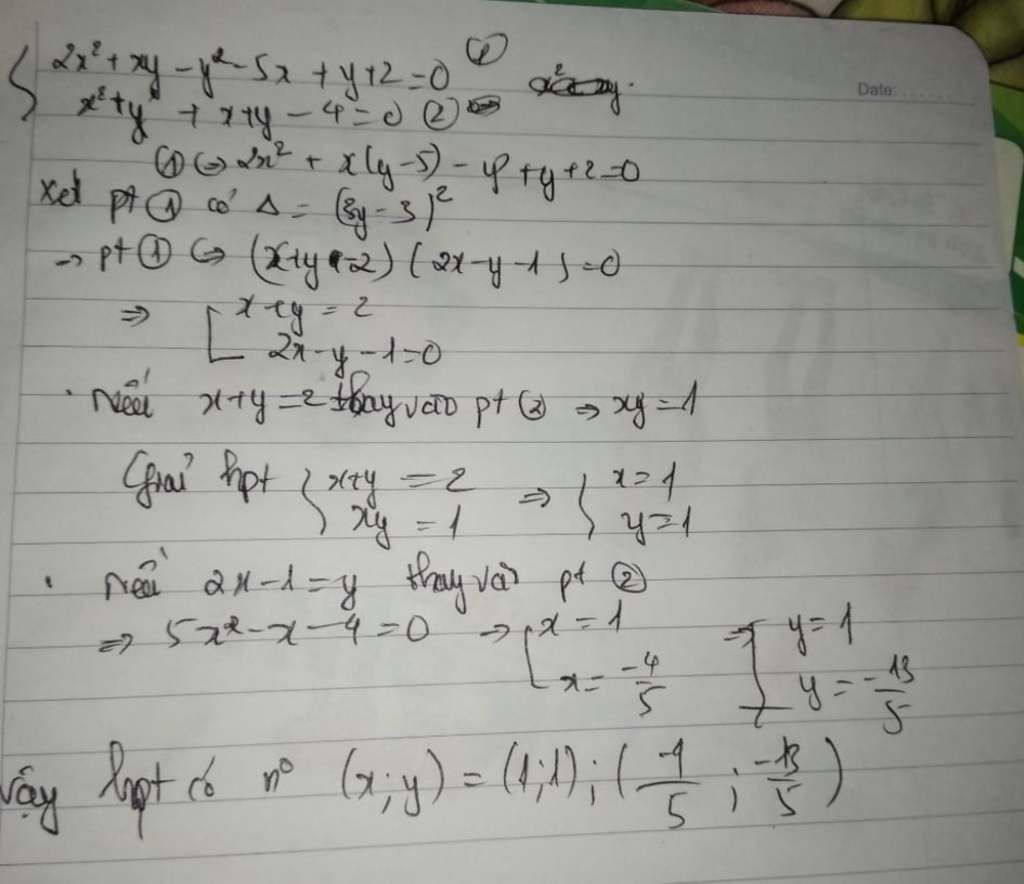 { 2x² + xy - y² - 5x + y + 2 = 0 ①
Date:
x² + y² + x + y - 4 = 0 ②
① ⇔ 2x² + x(y - 5) - y² + y + 2 = 0
Xét pt ① có Δ = (3y - 3)²
→ pt ① ⇔ (x + y - 2)(2x - y - 1) = 0
⇒ [ x + y = 2
2x - y - 1 = 0
· Nếu x + y = 2 thay vào pt ② ⇒ xy = 1
Giải hpt { x + y = 2 ⇒ { x = 1
xy = 1 y = 1
· Nếu 2x - 1 = y thay vào pt ②
⇒ 5x² - x - 4 = 0 → [ x = 1 ⇒ [ y = 1
x = -4/5 y = -13/5
Vậy hpt có n° (x; y) = (1; 1); (-4/5; -13/5)